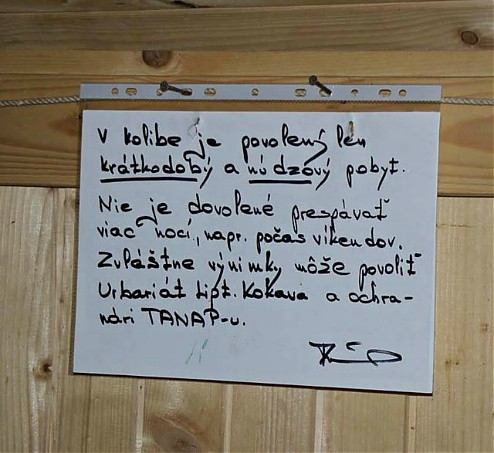 V kolibe je povolený len
krátkodobý a núdzový pobyt.
Nie je dovolené prespávať
viac nocí, napr. počas víkendov.
Zvláštne výnimky môže povoliť
Urbariát Lipt. Kokava a ochra-
nári TANAP-u.